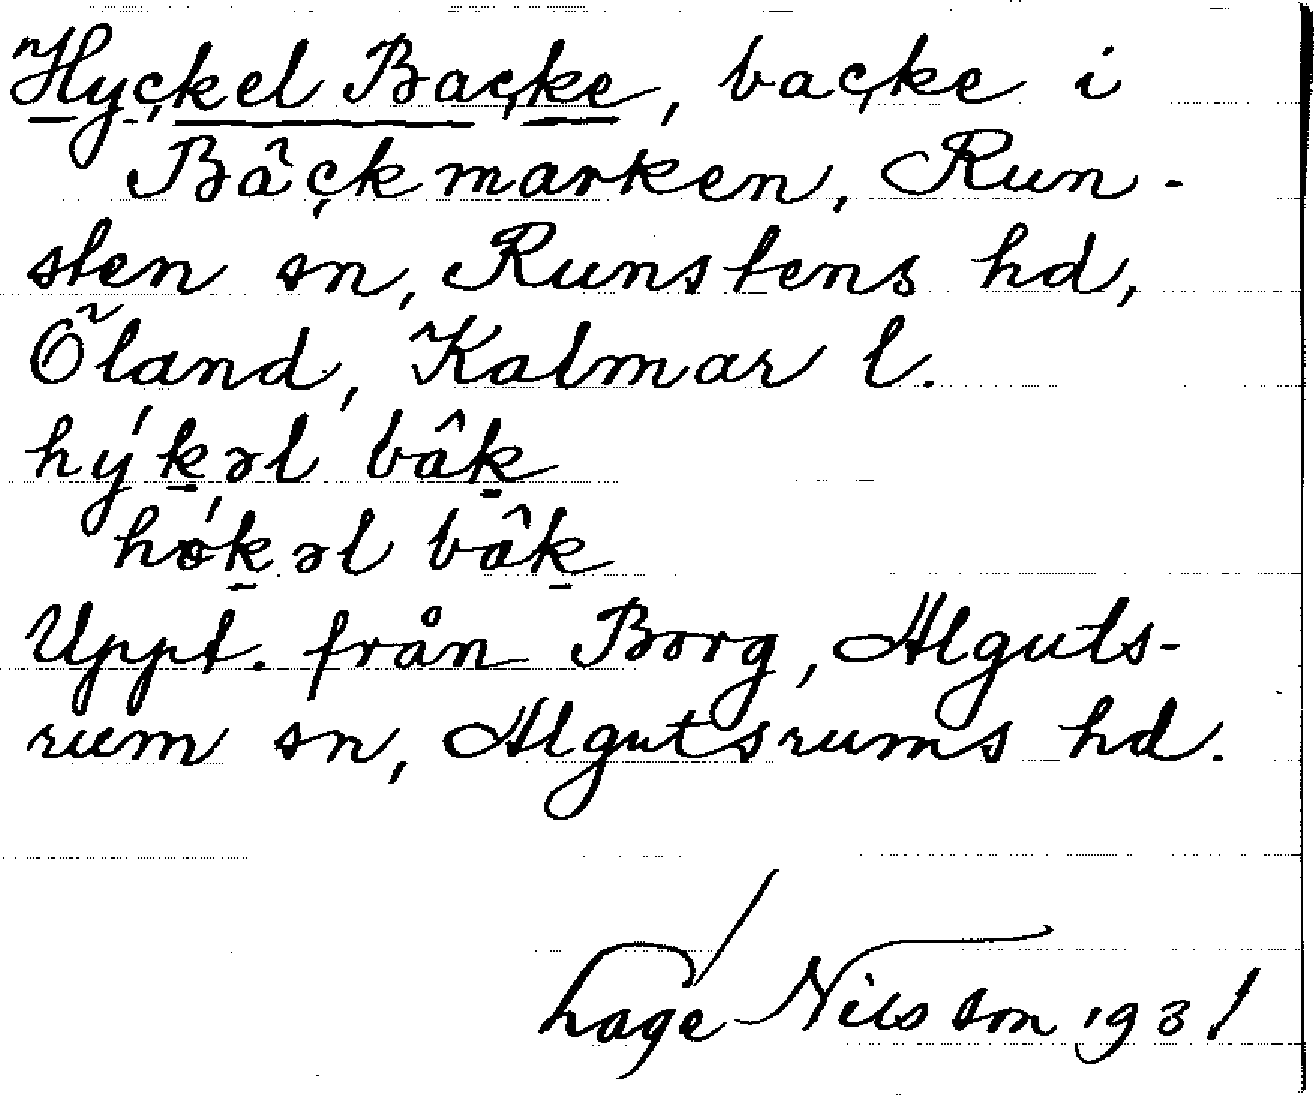 Hyckel Backe, backe i
Bäckmarken, Run-
sten sn, Runstens hd,
Öland, Kalmar l.
hýk̲əl bâk̲
hǿk̲əl bâk̲
Uppt. från Borg, Alguts-
rum sn, Algutsrums hd.
Tage Nilsson 1931